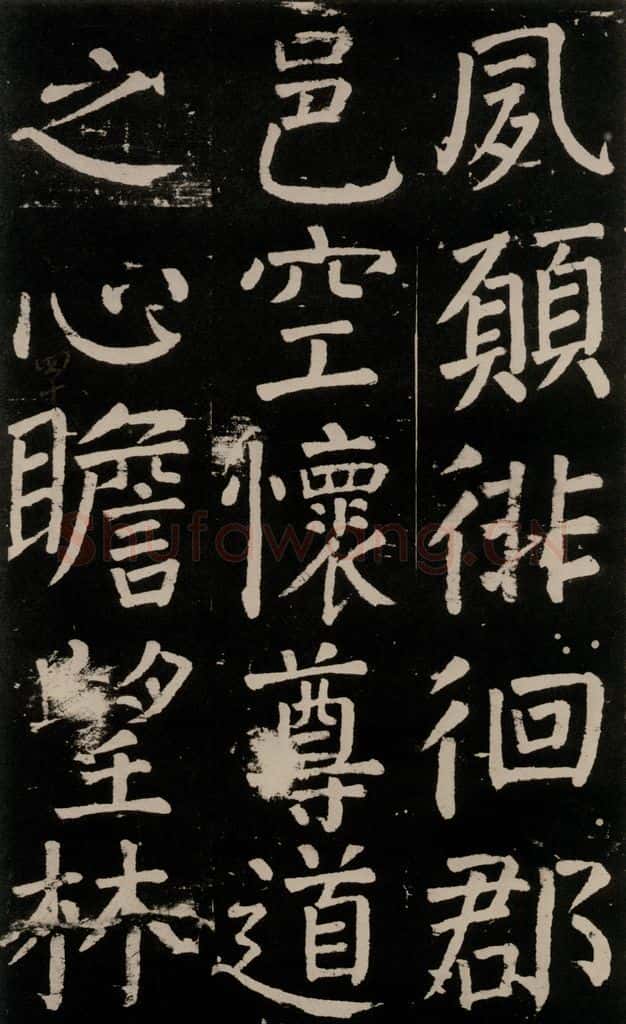 夙願徘徊郡
邑空懷尊道
之心瞻望林
四十
Shufawang.CN